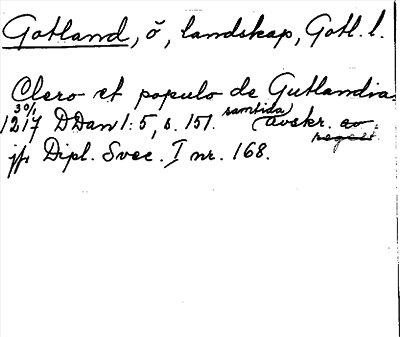 Gotland, ö, landskap, Gotl. l.
Clero et populo de Gutlandia.
30/1 1217 DDan 1:5, s. 151. samtida avskr. av regest.
jfr Dipl. Svec. I nr. 168.